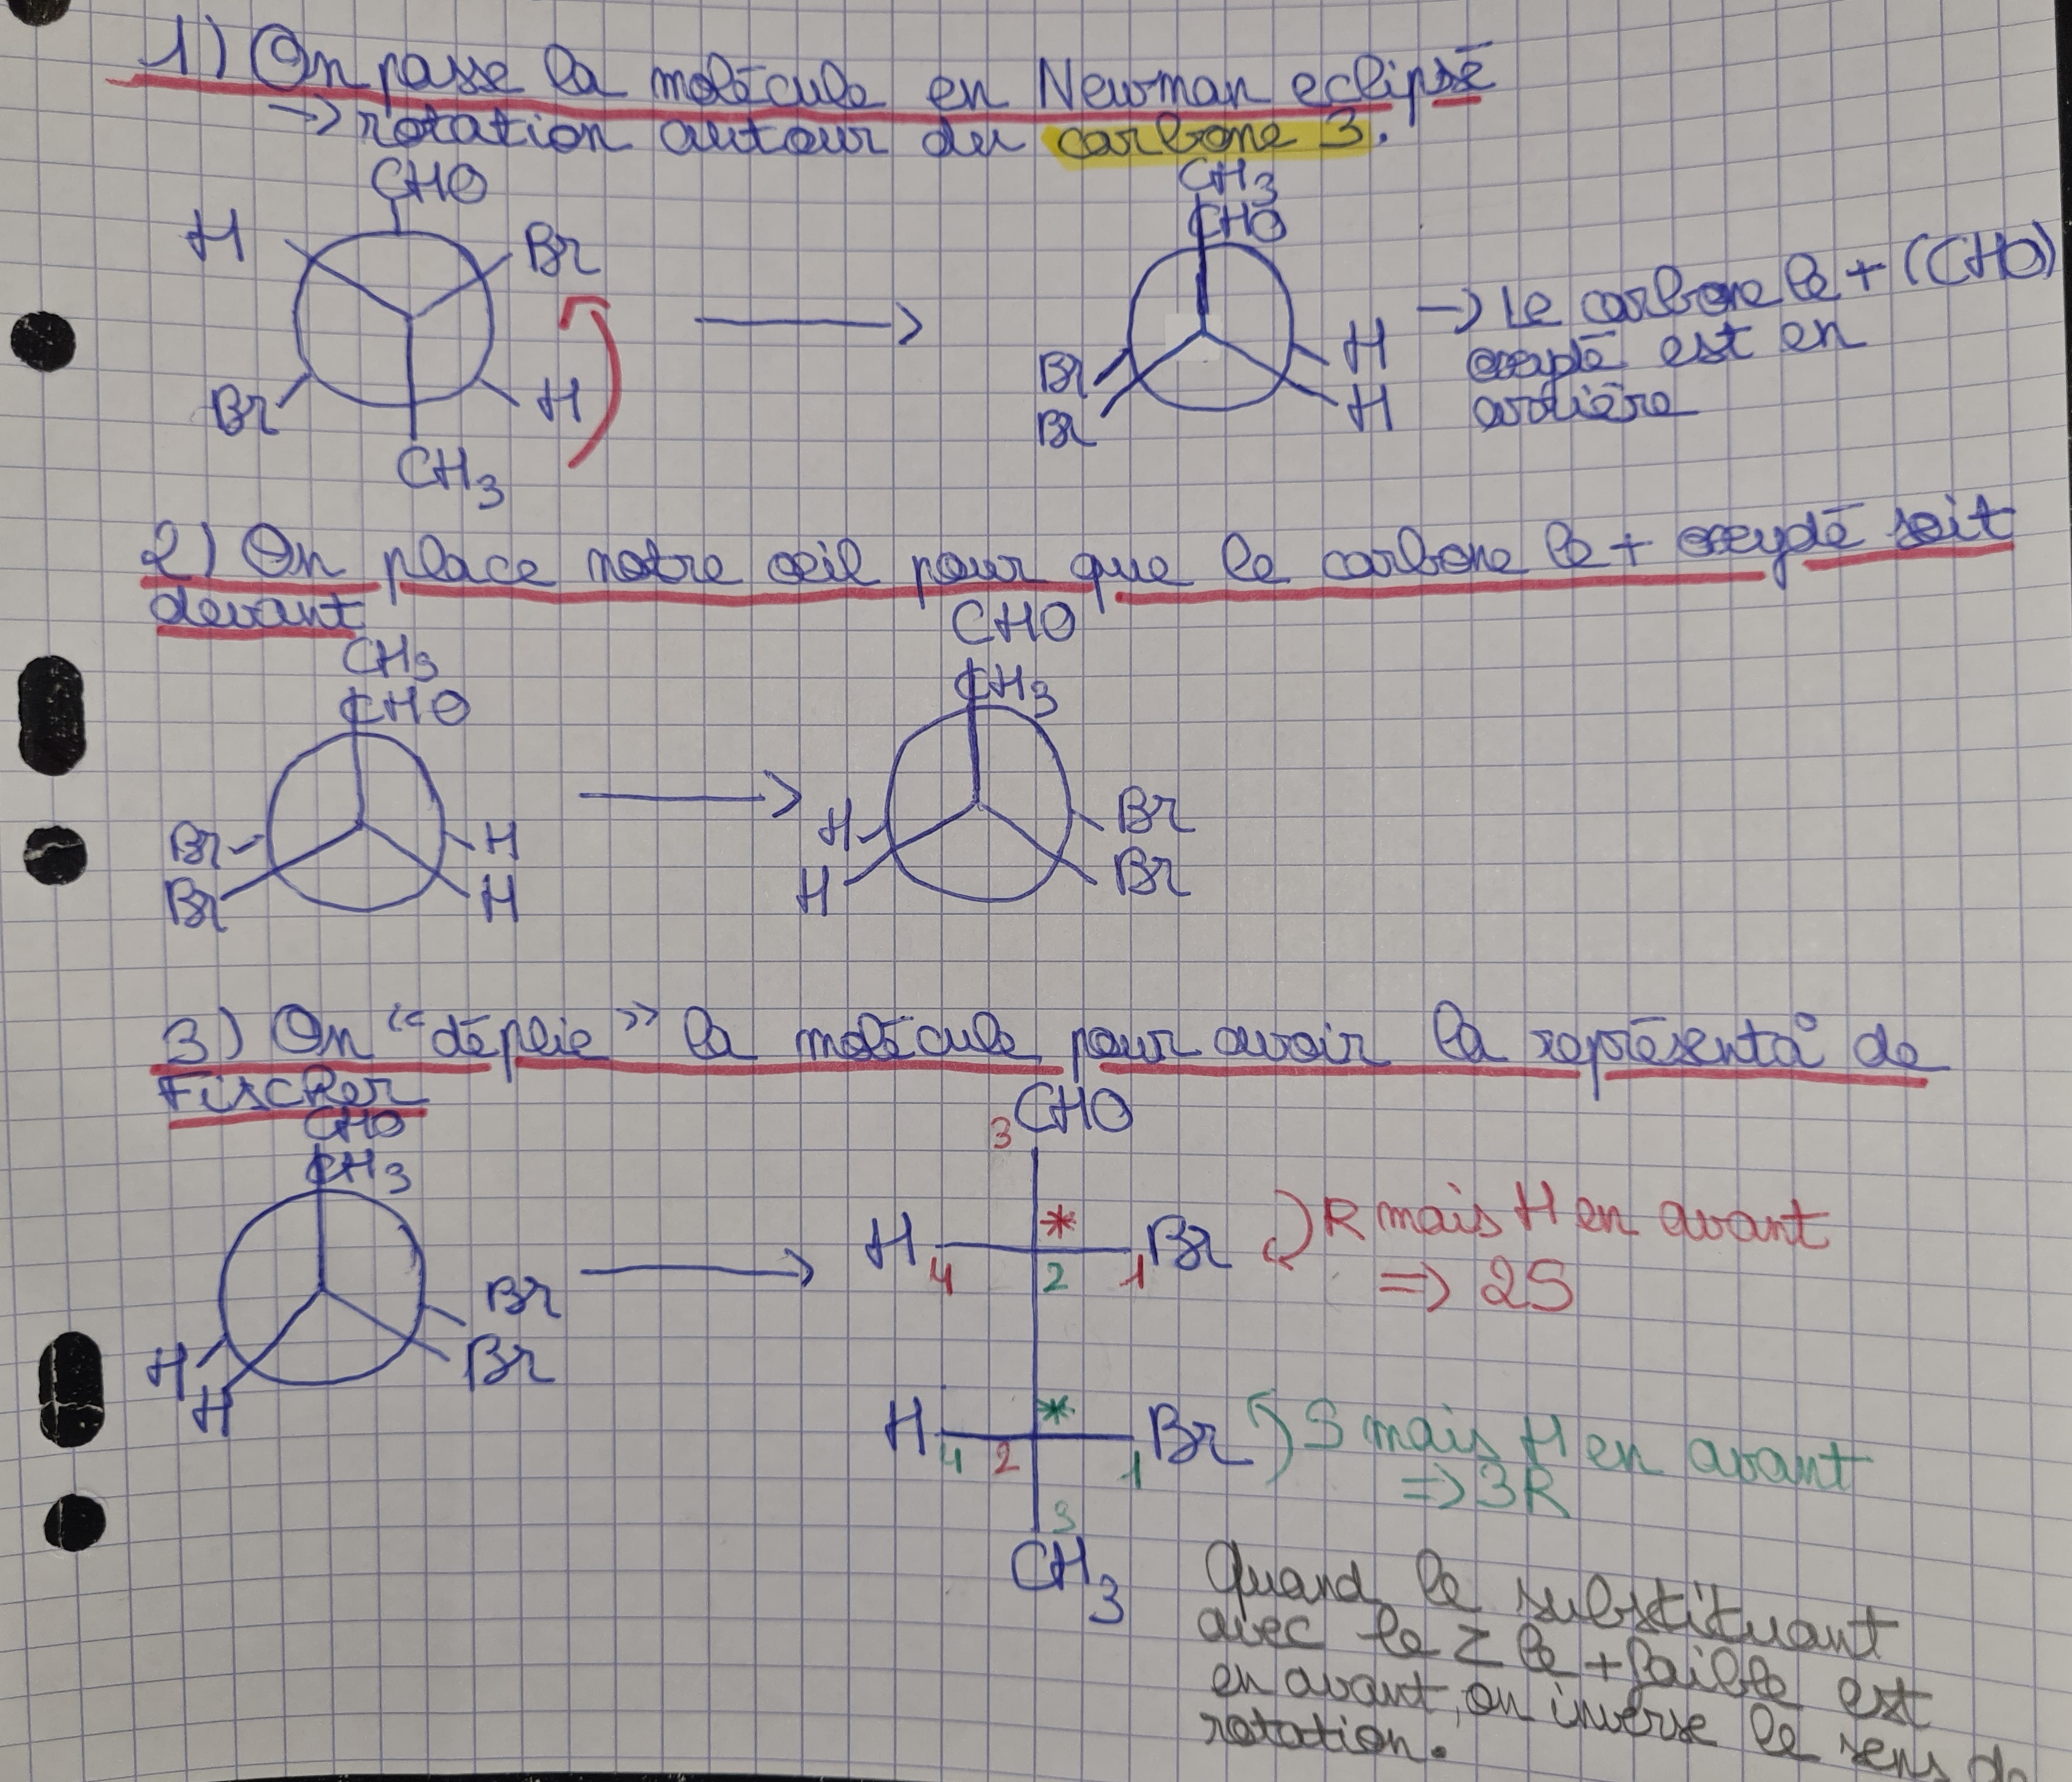 1) On passe la molécule en Newman eclipsé
-> rotation autour du carbone 3.
CHO
H
Br
Br
H
CH3
CH3
CHO
Br
Br
H
H
-> Le carbone le + (CHO)
oxydé est en
arrière
2) On place notre œil pour que le carbone le + oxydé soit
devant
CH3
CHO
Br
Br
H
H
CHO
CH3
H
H
Br
Br
3) On "déplie" la molécule pour avoir la représenta° de
Fischer
CHO
CH3
H
H
Br
Br
3 CHO
*
H 4 2 1 Br
R mais H en avant
=> 2S
*
H 4 2 1 Br
S mais H en avant
=> 3R
3
CH3
Quand le substituant
avec le Z le + faible est
en avant, on inverse le sens de
rotation.